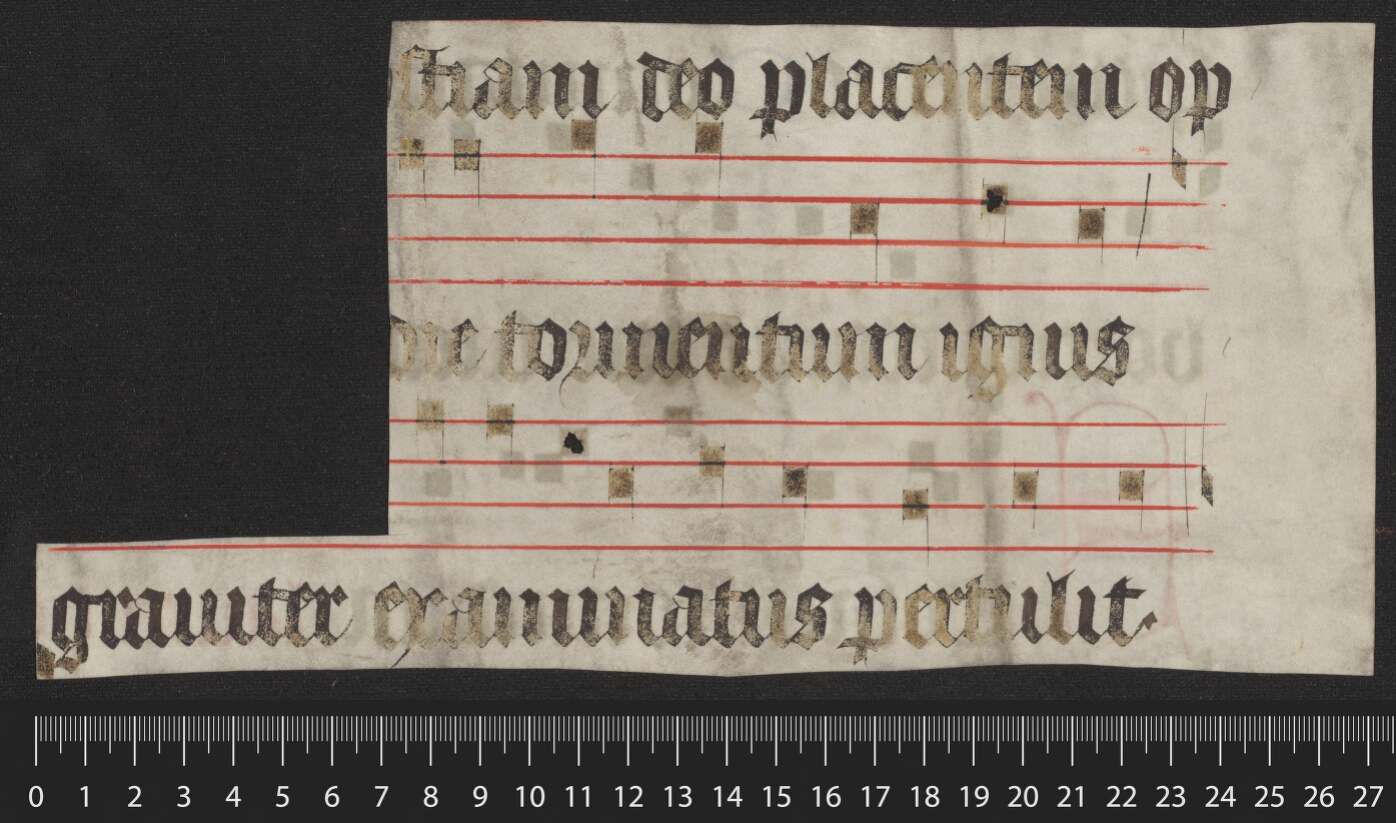 stiam deo placentem op
die tormentum ignis
grauiter examinatus pertulit.
0 1 2 3 4 5 6 7 8 9 10 11 12 13 14 15 16 17 18 19 20 21 22 23 24 25 26 27